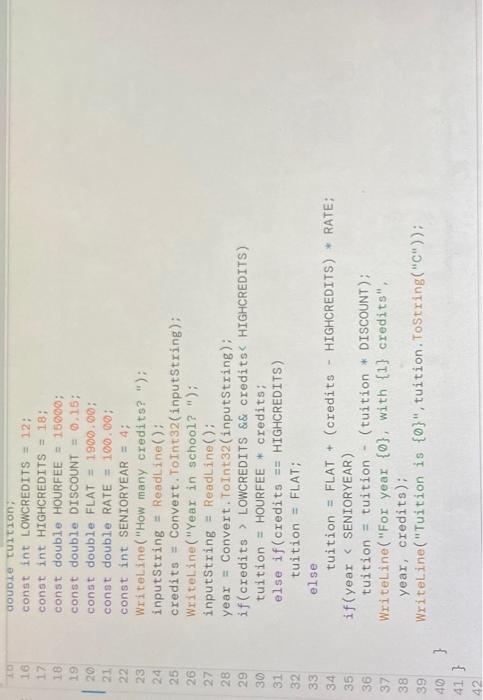 15 double tuition;
16 const int LOWCREDITS = 12;
17 const int HIGHCREDITS = 18;
18 const double HOURFEE = 15000;
19 const double DISCOUNT = 0.15;
20 const double FLAT = 1900.00;
21 const double RATE = 100.00;
22 const int SENIORYEAR = 4;
23 WriteLine("How many credits? ");
24 inputString = ReadLine();
25 credits = Convert.ToInt32(inputString);
26 WriteLine("Year in school? ");
27 inputString = ReadLine();
28 year = Convert.ToInt32(inputString);
29 if(credits > LOWCREDITS && credits< HIGHCREDITS)
30 tuition = HOURFEE * credits;
31 else if(credits == HIGHCREDITS)
32 tuition = FLAT;
33 else
34 tuition = FLAT + (credits - HIGHCREDITS) * RATE;
35 if(year < SENIORYEAR)
36 tuition = tuition - (tuition * DISCOUNT);
37 WriteLine("For year {0}, with {1} credits",
38 year, credits);
39 WriteLine("Tuition is {0}",tuition.ToString("C"));
40 }
41 }
42